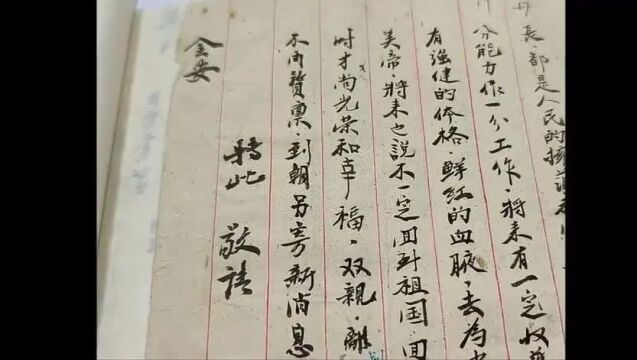 長、都是人民的擁
分能力作一分工作、将来有一定收
有强健的体格、鲜红的血腋、去為
美帝、将来也說不一定回到祖国、回
时才尚光荣和幸福、双親、離
不内贅禀、到朝另寄新消息
特此 敬請
金安